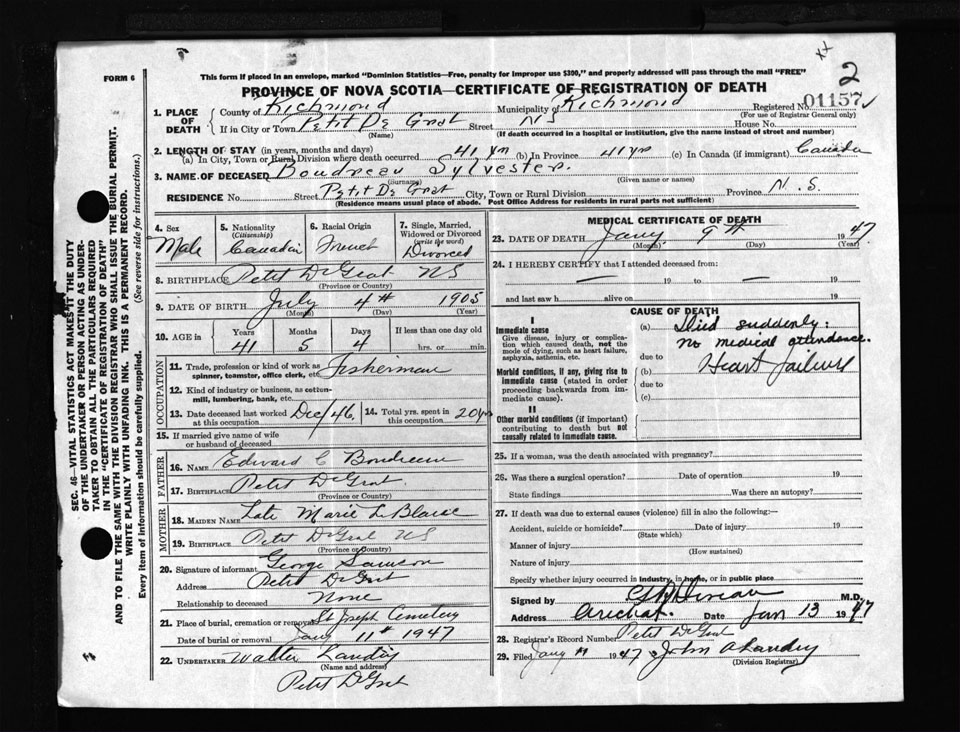 xx
2
FORM 6
This form if placed in an envelope, marked "Dominion Statistics—Free, penalty for improper use $300," and properly addressed will pass through the mail "FREE"
PROVINCE OF NOVA SCOTIA—CERTIFICATE OF REGISTRATION OF DEATH
1. PLACE OF DEATH County of Richmond Municipality of Richmond Registered No. 01157
(For use of Registrar General only)
If in City or Town Petit De Grat Street NS House No.
(Name) (If death occurred in a hospital or institution, give the name instead of street and number)
2. LENGTH OF STAY (in years, months and days)
(a) In City, Town or Rural Division where death occurred 41 yrs (b) In Province 41 yrs (c) In Canada (if immigrant) Canada
3. NAME OF DECEASED Boudreau Sylvester
(Surname) (Given name or names)
RESIDENCE No. Street Petit De Grat City, Town or Rural Division Province N.S.
(Residence means usual place of abode. Post Office Address for residents in rural parts not sufficient)
4. Sex Male
5. Nationality (Citizenship) Canadian
6. Racial Origin French
7. Single, Married, Widowed or Divorced (write the word) Divorced
8. BIRTHPLACE Petit DeGrat NS
(Province or Country)
9. DATE OF BIRTH July 4th 1905
(Month) (Day) (Year)
10. AGE in Years Months Days If less than one day old
41 5 4 hrs. or min.
OCCUPATION
11. Trade, profession or kind of work as spinner, teamster, office clerk, etc. Fisherman
12. Kind of industry or business, as cotton-mill, lumbering, bank, etc.
13. Date deceased last worked at this occupation Dec/46 14. Total yrs. spent in this occupation 20 yrs
15. If married give name of wife or husband of deceased
FATHER
16. NAME Edward C Boudreau
17. BIRTHPLACE Petit DeGrat
(Province or Country)
MOTHER
18. MAIDEN NAME Late Marie LeBlanc
19. BIRTHPLACE Petit DeGrat NS
(Province or Country)
20. Signature of informant George Samson
Address Petit DeGrat
Relationship to deceased None
21. Place of burial, cremation or removal St Joseph Cemetery
Date of burial or removal Jany 11th 1947
22. UNDERTAKER Walter Landry
(Name and address)
Petit DeGrat
MEDICAL CERTIFICATE OF DEATH
23. DATE OF DEATH Jany 9th 1947
(Month) (Day) (Year)
24. I HEREBY CERTIFY that I attended deceased from:
— 19 to — 19
and last saw h alive on 19
CAUSE OF DEATH
I
Immediate cause
Give disease, injury or complication which caused death, not the mode of dying, such as heart failure, asphyxia, asthenia, etc.
(a) Died suddenly:
No medical attendance.
due to
Morbid conditions, if any, giving rise to immediate cause (stated in order proceeding backwards from immediate cause).
(b) Heart failure
due to
(c)
II
Other morbid conditions (if important) contributing to death but not causally related to immediate cause.
25. If a woman, was the death associated with pregnancy?
26. Was there a surgical operation? Date of operation 19
State findings Was there an autopsy?
27. If death was due to external causes (violence) fill in also the following:—
Accident, suicide or homicide? Date of injury 19
(State which)
Manner of injury
(How sustained)
Nature of injury
Specify whether injury occurred in industry, in home, or in public place
Signed by M.D.
Address Arichat. Date Jan 13 1947
28. Registrar's Record Number Petit DeGrat
29. Filed Jany 11 1947 John A Landry
(Division Registrar)
SEC. 46—VITAL STATISTICS ACT MAKES IT THE DUTY
OF THE UNDERTAKER OR PERSON ACTING AS UNDER-
TAKER TO OBTAIN ALL THE PARTICULARS REQUIRED
IN THE "CERTIFICATE OF REGISTRATION OF DEATH"
AND TO FILE THE SAME WITH THE DIVISION REGISTRAR WHO SHALL ISSUE THE BURIAL PERMIT.
WRITE PLAINLY WITH UNFADING INK. THIS IS A PERMANENT RECORD.
Every item of information should be carefully supplied. (See reverse side for instructions.)